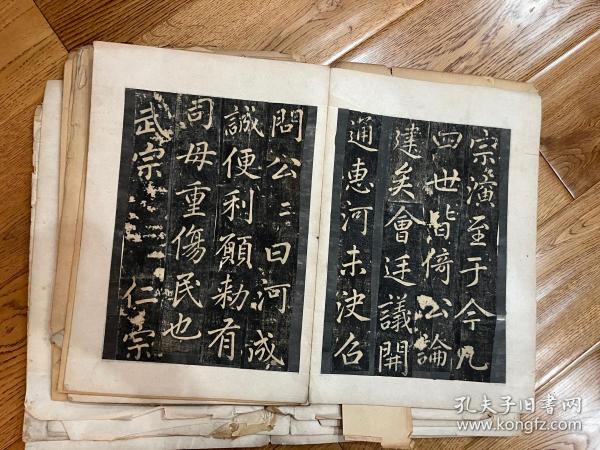 宗至于今凡
四世皆倚公論
建矣會廷議開
通惠河未決召
問公〻曰河成
誠便利願勅有
司毋重傷民也
武宗仁宗
孔夫子旧书网
www.kongfz.com